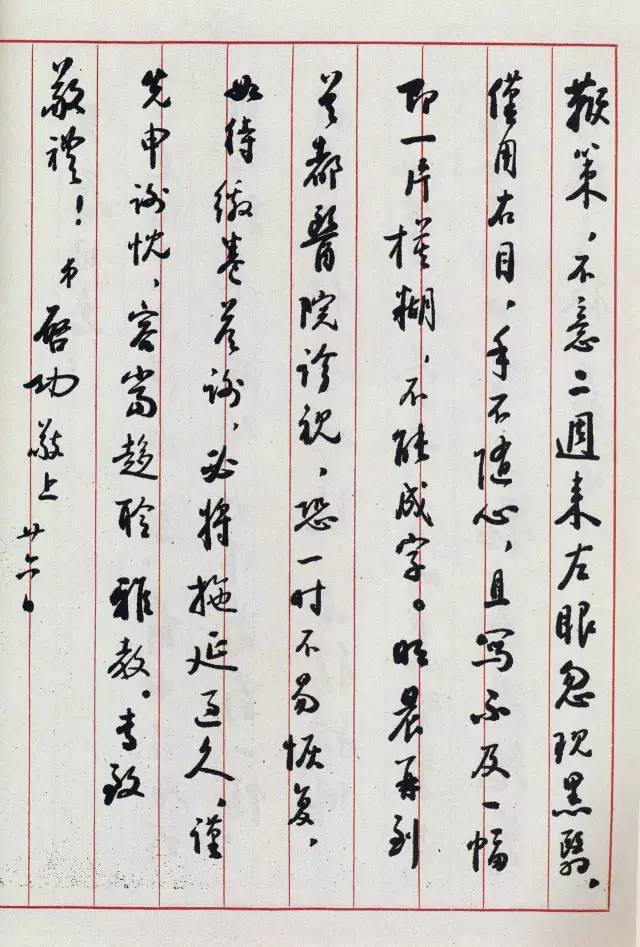 鞭策，不意二週来左眼忽现黑翳，
僅用右目，手不随心，且写不及一幅
即一片模糊，不能成字。昨晨再到
首都醫院诊视，恐一时不易恢复，
如待缴卷答谢，必将拖延过久，谨
先申谢忱，容当趋聆雅教。专致
敬礼！弟启功敬上 廿六日